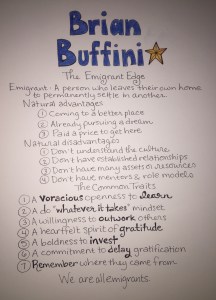 Brian
Buffini
The Emigrant Edge
Emigrant: A person who leaves their own home
to permanently settle in another.
Natural advantages
① Coming to a better place
② Already pursuing a dream
③ Paid a price to get here
Natural disadvantages
① Don't understand the culture
② Don't have established relationships
③ Don't have many assets or resources
④ Don't have mentors & role models
The Common Traits
① A voracious openness to learn
② A do "whatever it takes" mindset
③ A willingness to outwork others
④ A heartfelt spirit of gratitude
⑤ A boldness to invest
⑥ A commitment to delay gratification
⑦ Remember where they came from
We are all emigrants.